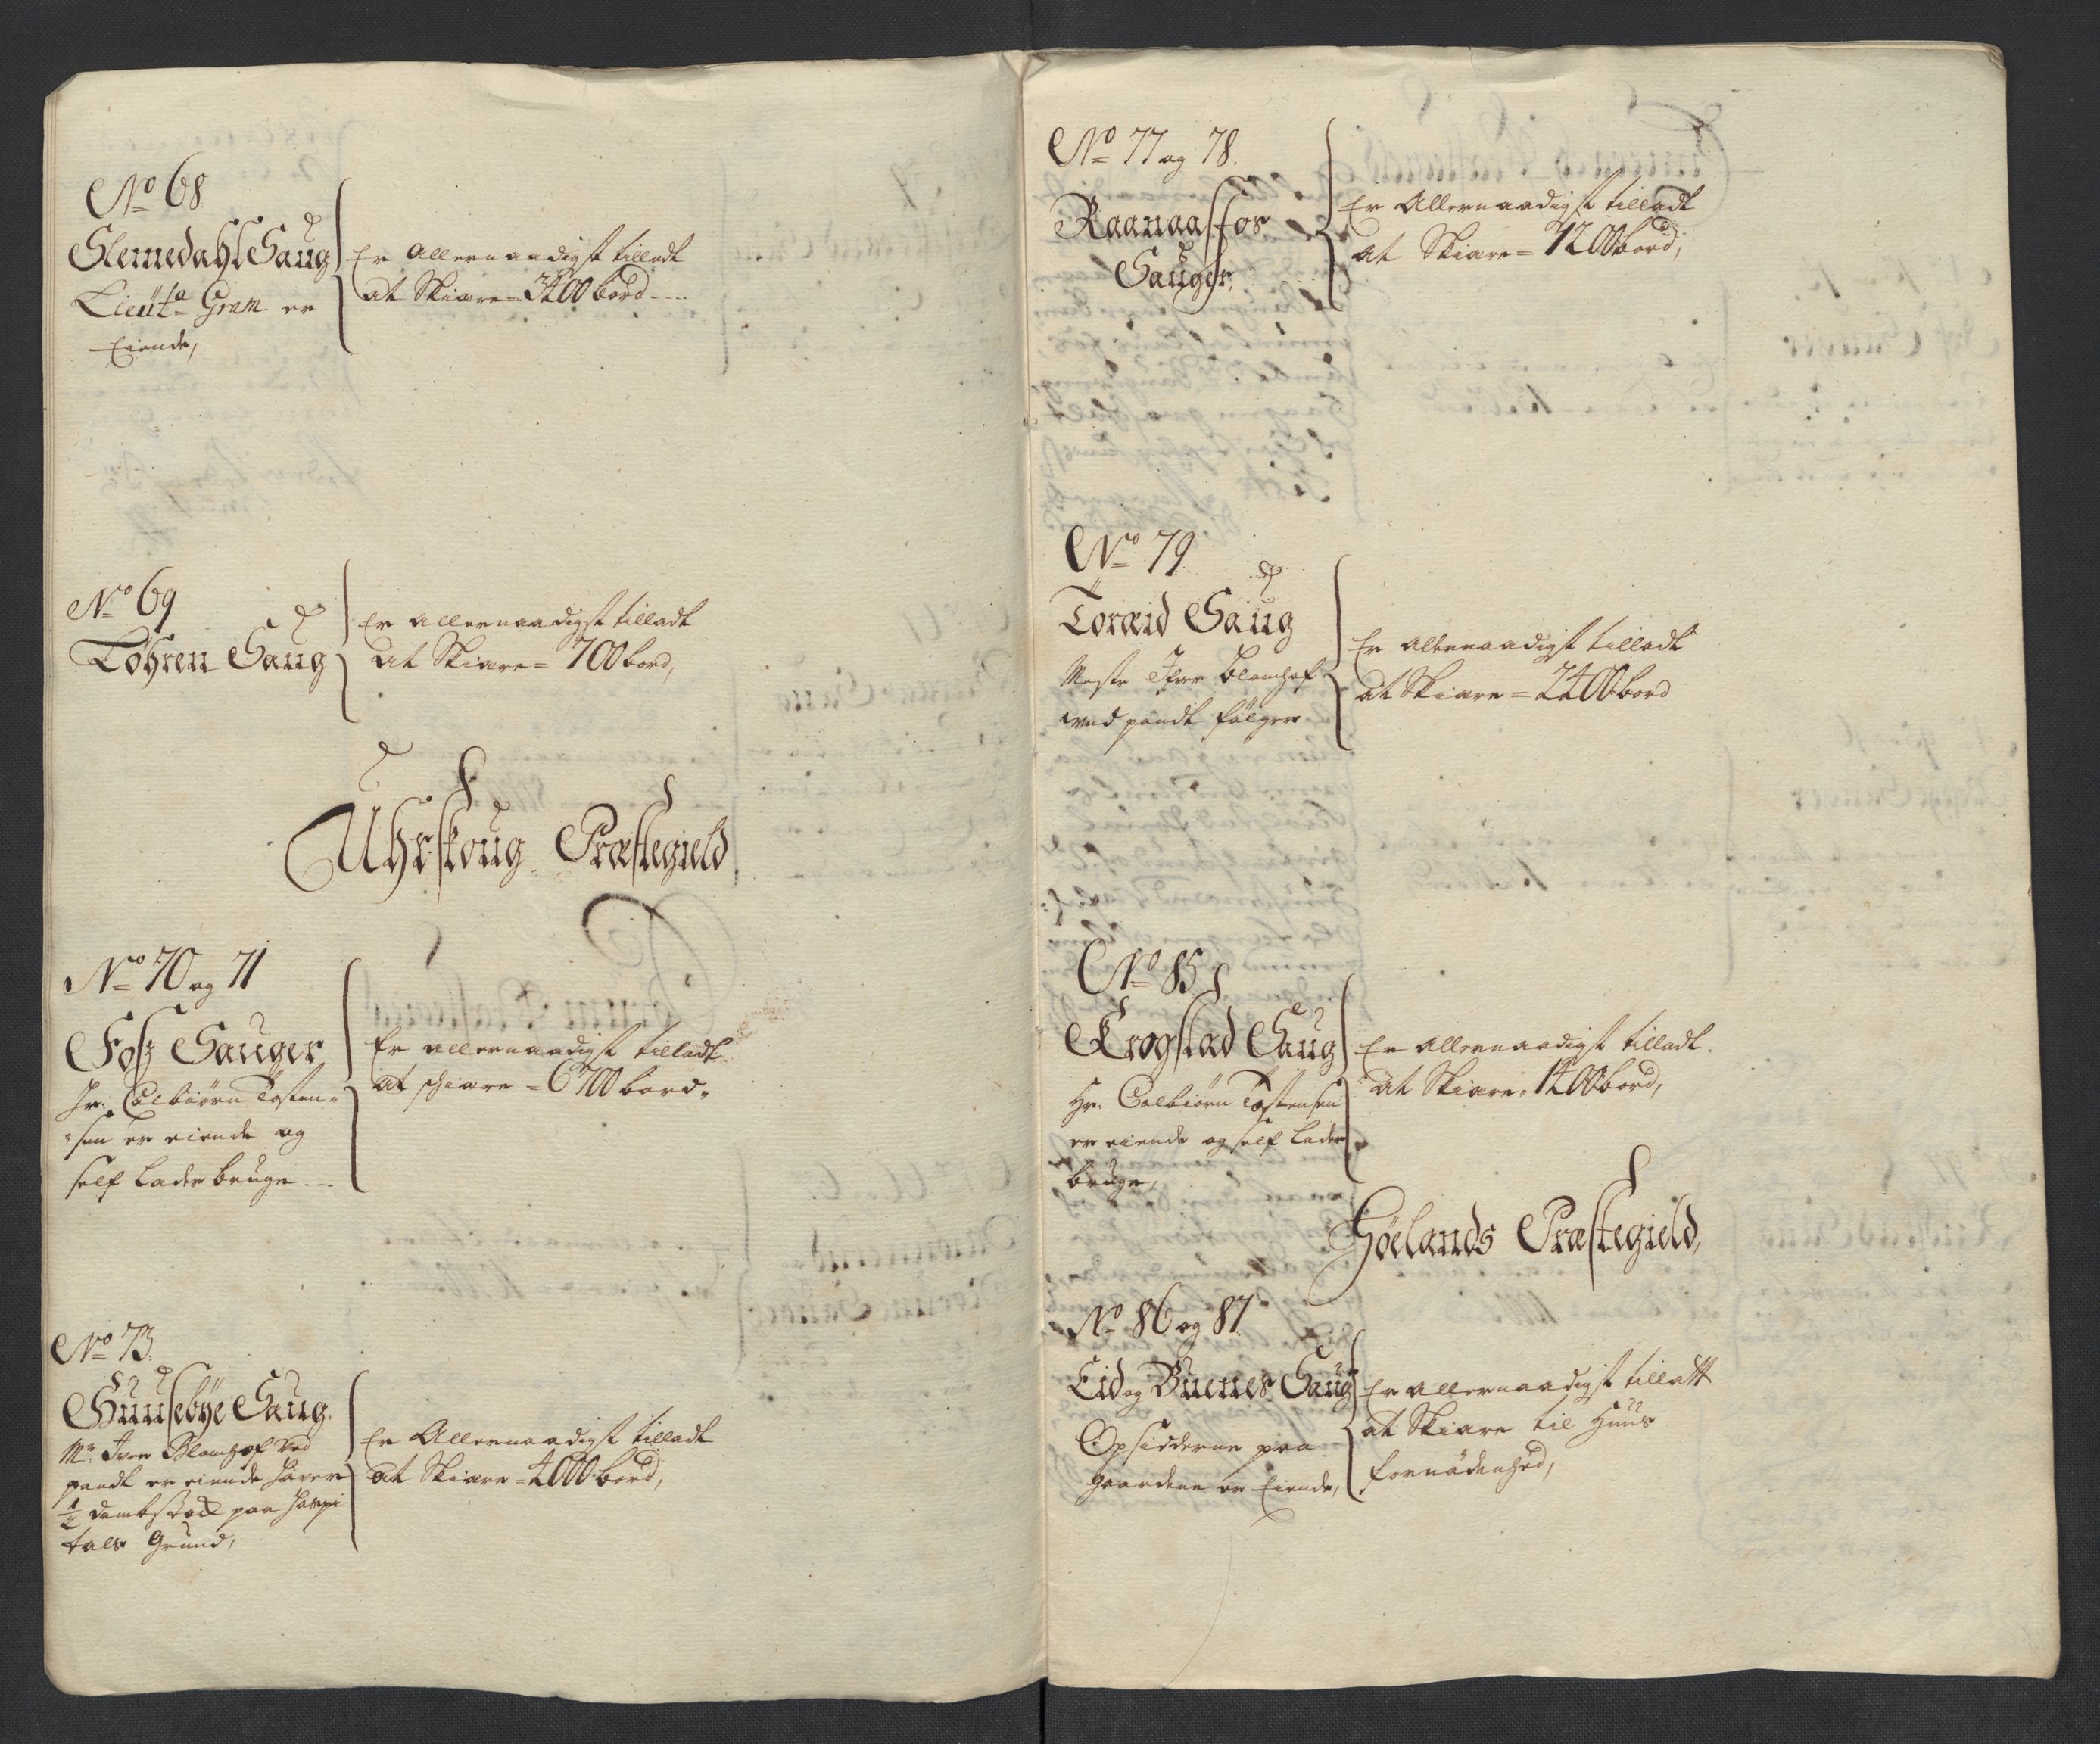 No 68
Slemedahl Saug
Lieut.a Gram er
Eiende,
Er Allernaadigst tilladt
at Skiære = 3400 bord ----
No 69
Töhren Saug
Er allernaadigst tilladt
at Skiære = 700 bord,
Uhrskoug Præstegield,
No 70 og 71
Fosz Sauger
Hr. Colbiörn Tosten-
sen er eiende og
self lader bruge ---
Er allernaadigst tilladt
at schiære = 6700 bord,
No 73.
Huusebÿe Saug
Mr. Iver Blomhof ved
pandt er eiende haver
1/2 dambstoel paa Hospi
tals Grund,
Er Allernaadigst tilladt
at Skiære = 4000 bord,
No 77 og 78.
Raanaasfos
Sauger,
Er Allernaadigst tilladt
at Skiære = 7200 bord,
No 79
Toræid Saug
Meste Ifver Blomhof
ved pandt fölger
Er allernaadigst tilladt
at Skiære = 2400 bord
No 85
Krogstad Saug
Hr. Colbiörn Tostensen
er eiende og self lader
bruge,
Er allernaadigst tilladt
at Skiære = 1400 bord,
Höelands Præstegield,
No 86 og 87.
Eid og Buenes Saug
Opsidderne paa
gaardene er Eiende,
Er allernaadigst tilladt
at Skiære til Huus
fornödenhed,